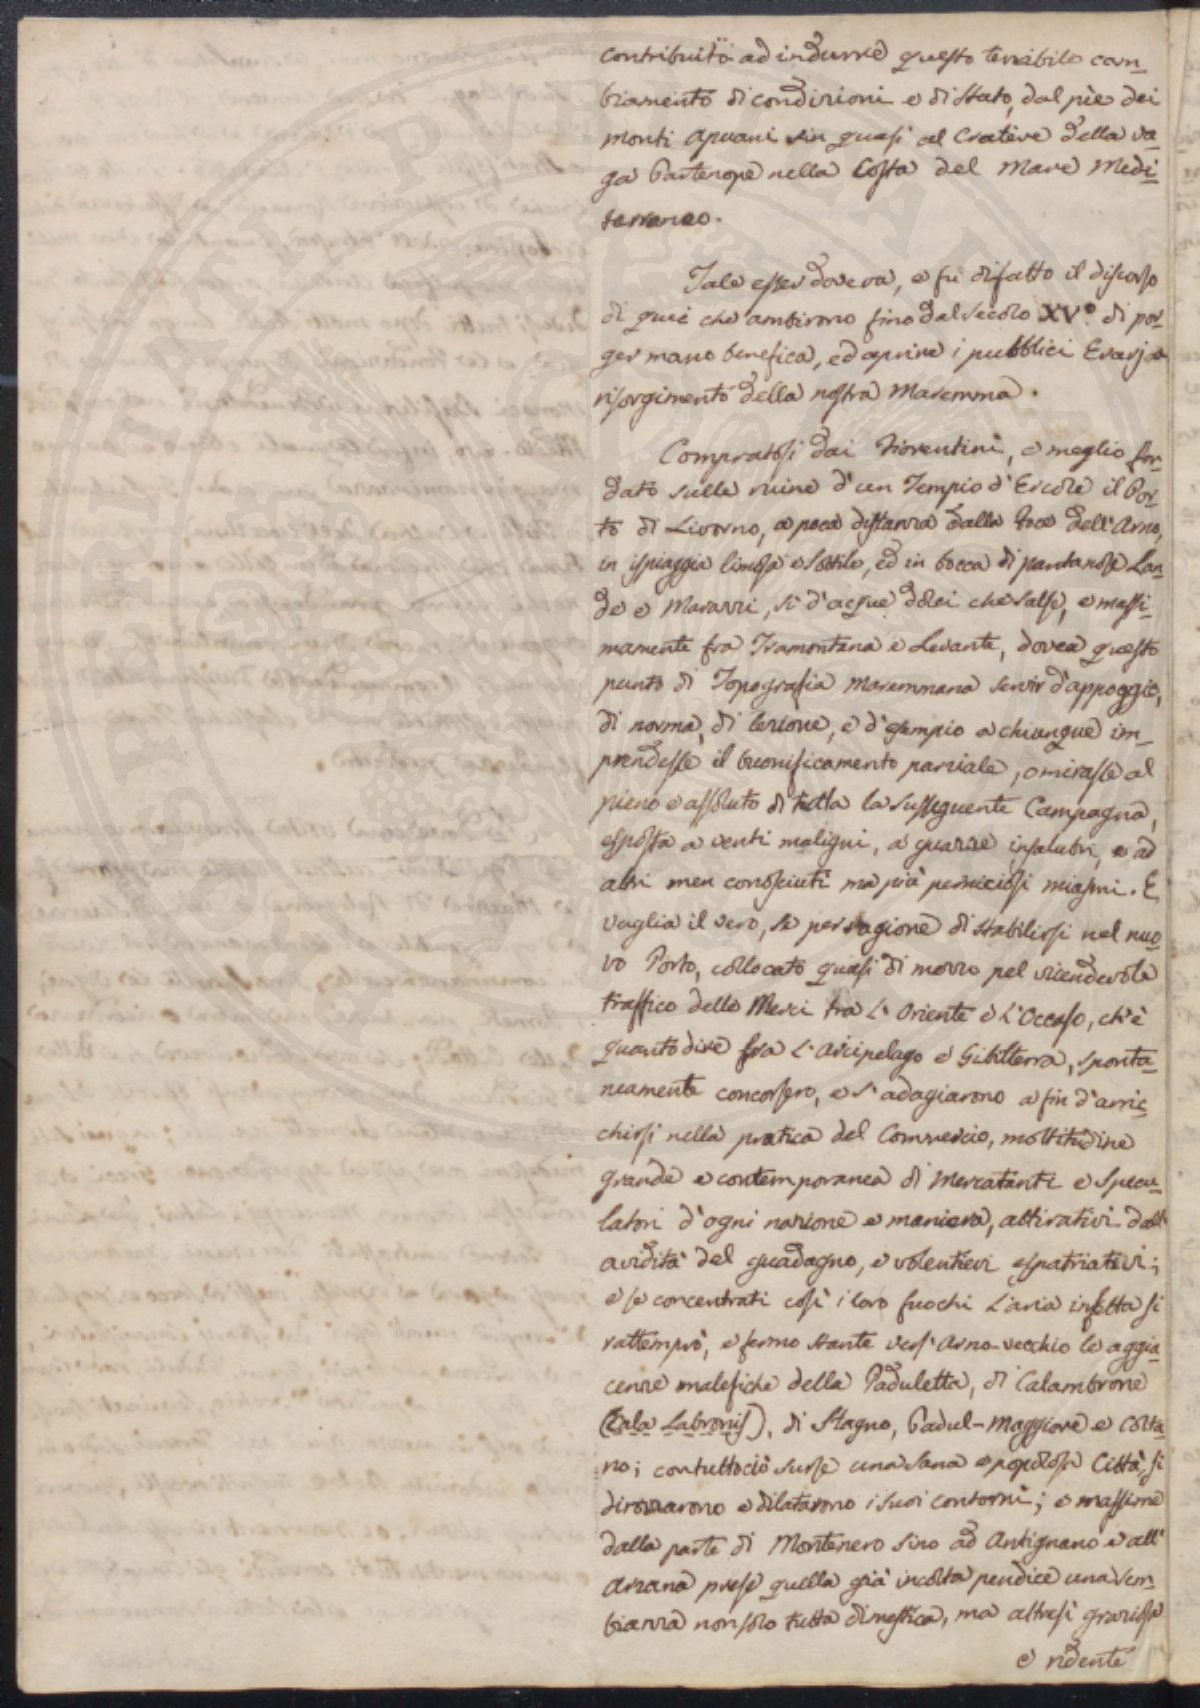 contribuito ad indurre questo terribile cam-
biamento di condizioni e di stato, dal piè dei
monti Apuani sin quasi al Cratere della va-
ga Partenope nella Costa del Mare Medi-
terraneo.
Tale esser doveva, e fu difatto il discorso
di quei che ambirono fino dal secolo XV.° di por-
ger mano benefica, ed aprire i pubblici Erarj a
risorgimento della nostra Maremma.
Compratosi dai Fiorentini, e meglio fon-
dato sulle ruine d'un Tempio d'Ercole il Por-
to di Livorno, a poca distanza dalla foce dell'Arno,
in ispiaggia limosa e sottile, ed in bocca di pantanose Lan-
de e Marazzi, sì d'acque dolci che salse, e massi-
mamente fra Tramontana e Levante, dovea questo
punto di Topografia Maremmana servir d'appoggio,
di norma, di lezione, e d'esempio a chiunque im-
prendesse il buonificamento parziale, o mirasse al
pieno e assoluto di tutta la susseguente Campagna,
esposta a venti maligni, a guazze insalubri, e ad
altri men conosciuti ma più perniciosi miasmi. E
vaglia il vero, se per ragione di stabilirsi nel nuo-
vo Porto, collocato quasi di mezzo pel vicendevole
traffico delle Merci tra L'Oriente e L'Occaso, ch'è
quanto dire fra L'Arcipelago e Gibilterra, sponta-
neamente concorsero, e s'adagiarono a fin d'arric-
chirsi nella pratica del Commercio, moltitudine
grande e contemporanea di Mercatanti e Specu-
latori d'ogni nazione e maniera, attirativi dall'
avidità del guadagno, e volentieri espatriativi;
e se concentrati così i loro fuochi L'aria infetta si
rattemprò, e fermo stante vers'Arno-vecchio le aggia-
cenze malefiche della Paduletta, di Calambrone
(Cala Labronis), di Stagno, Padul-Maggiore e Colta-
no; contuttociò surse una sana e popolosa Città, si
dirozzarono e dilatarono i suoi contorni; e massime
dalla parte di Montenero sino ad Antignano e all'
Arzana prese quella già incolta pendice una sem-
bianza non solo tutta dimestica, ma altresì graziosa
e ridente